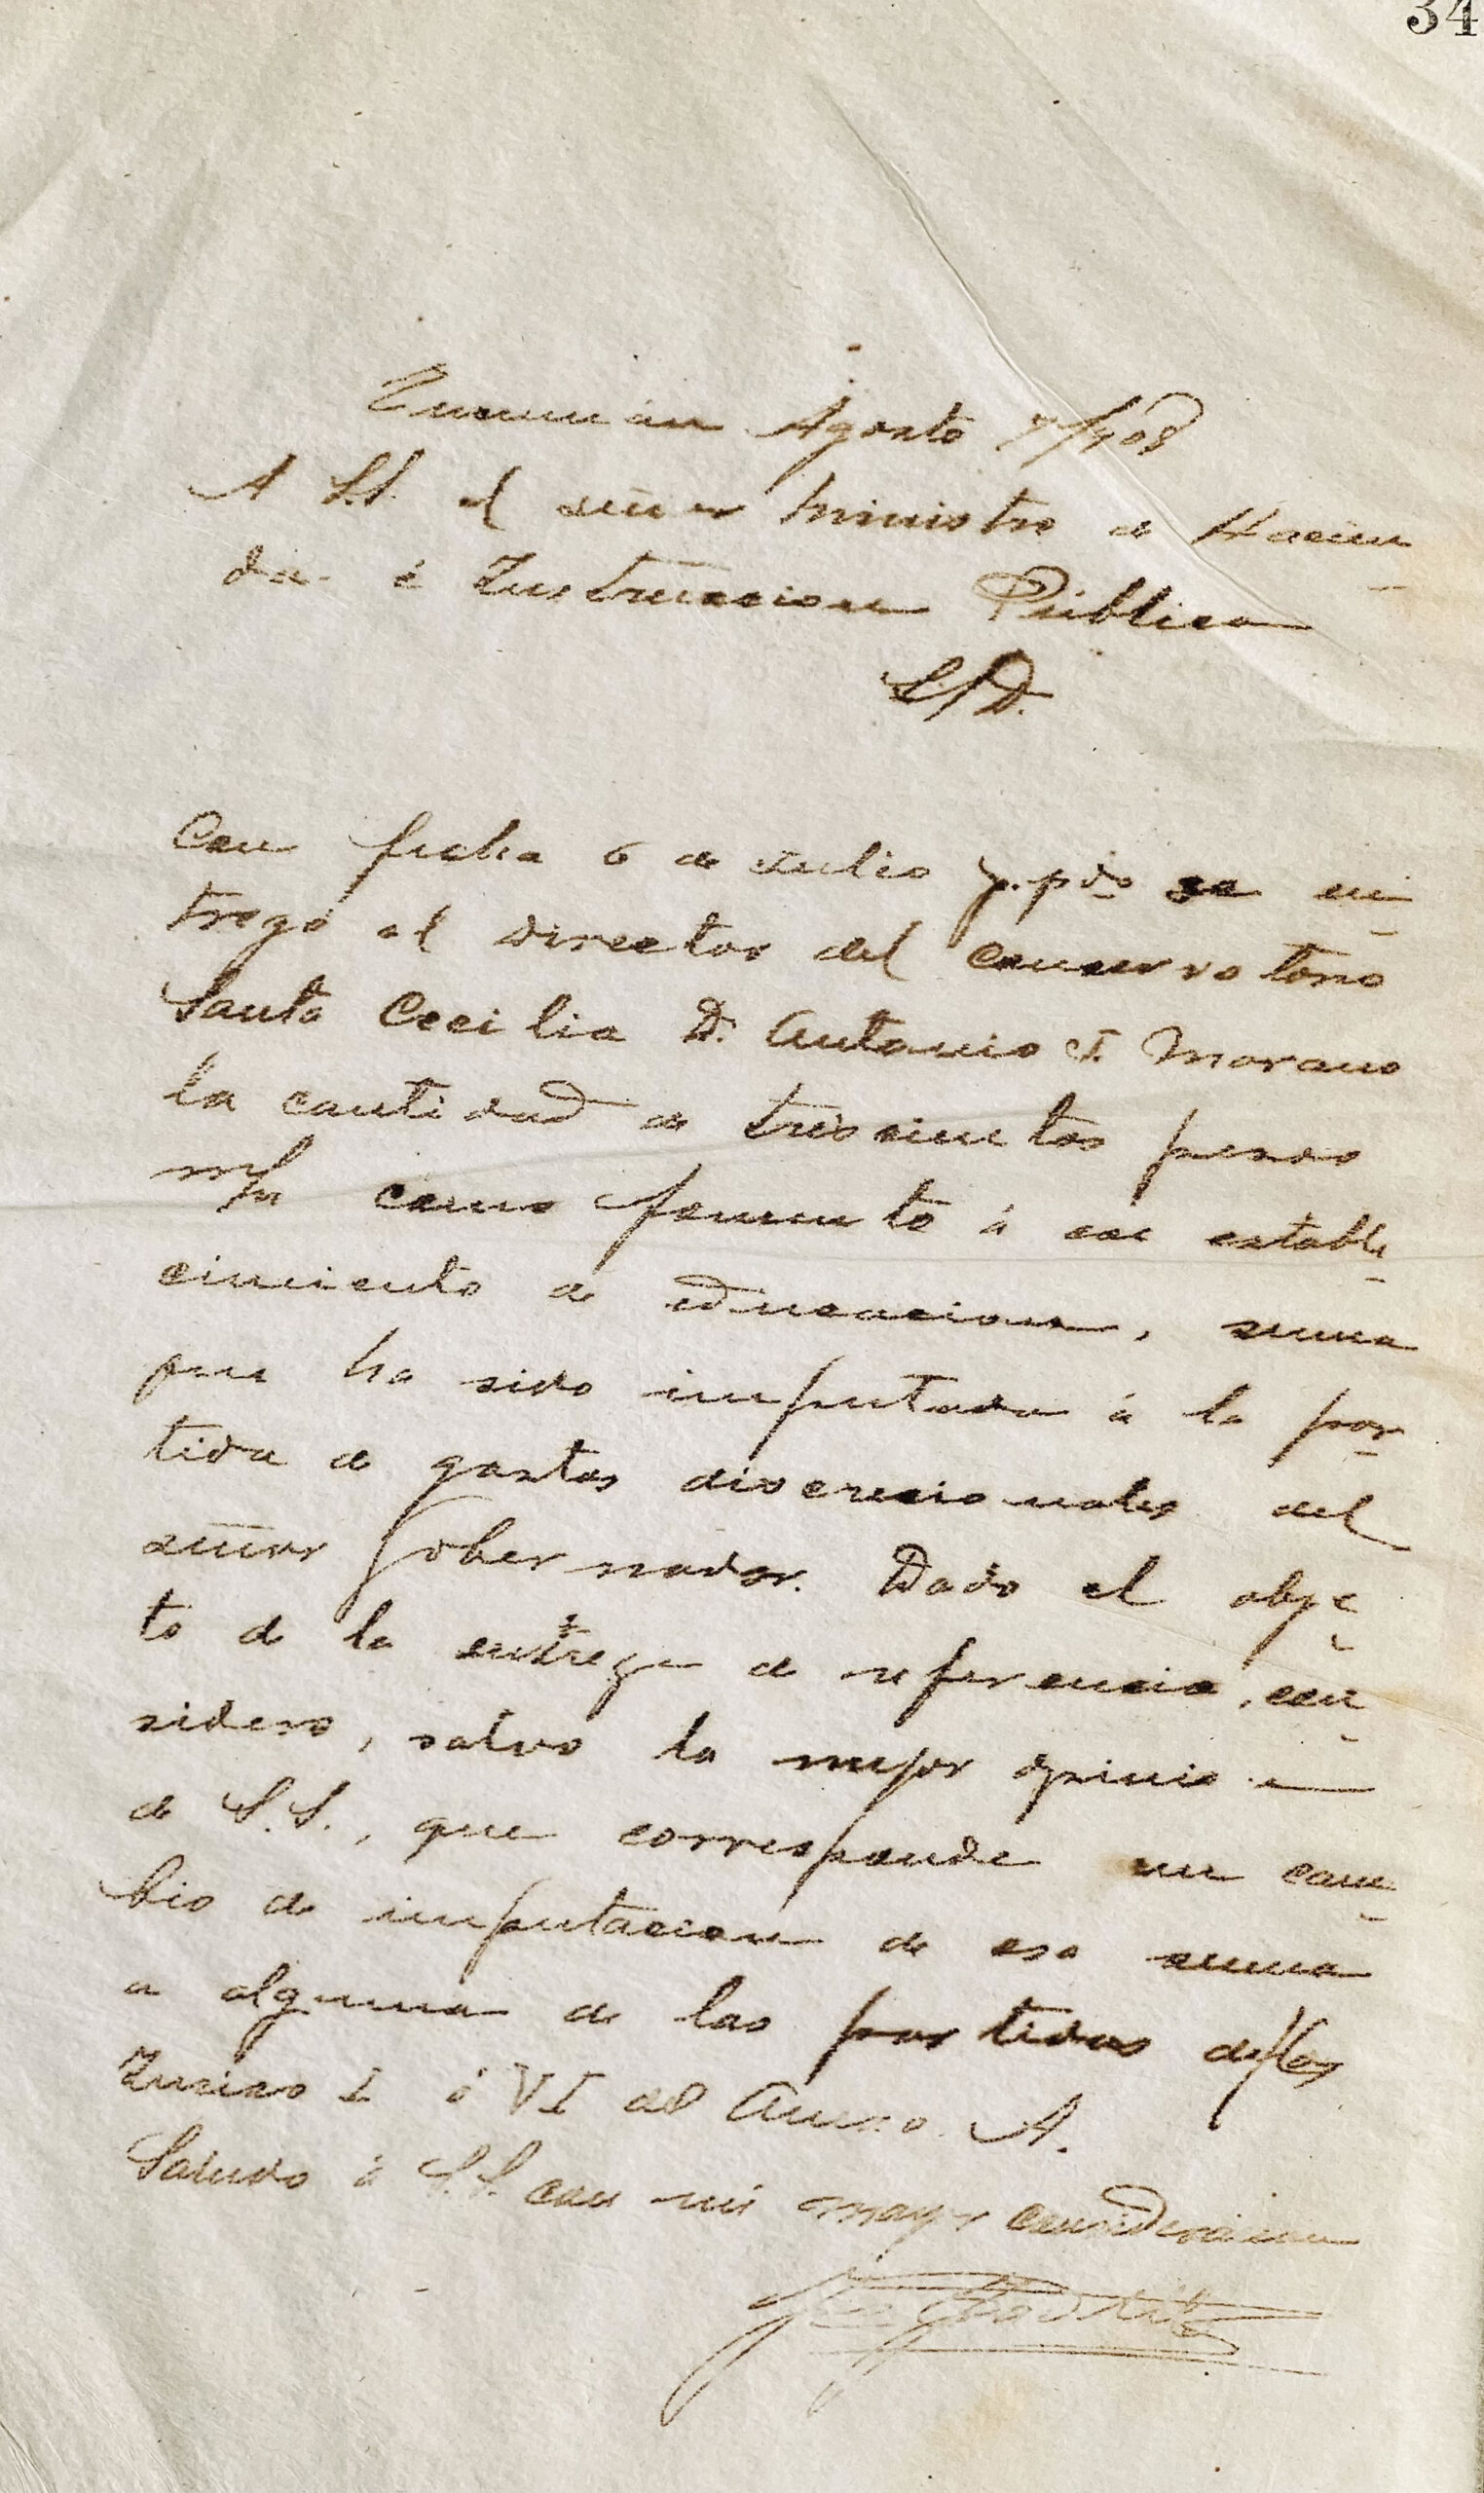 34
Tucumán Agosto 7/908
A S.S. el señor Ministro de Hacien
da é Instruccion Pública
S/D.
Con fecha 6 de Julio p.pdo se en
tregó al director del conservatorio
Santa Cecilia D. Antonio J. Morano
la cantidad de trescientos pesos
m/n como fomento á ese estable
cimiento de educacion, suma
que ha sido imputada á la par
tida de gastos discrecionales del
señor Gobernador. Dado el obje
to de la entrega de referencia, con
sidero, salvo la mejor opinion
de S.S., que corresponde un cam
bio de imputacion de esa suma
a alguna de las partidas de los
Inciso I ó VI del Anexo A.
Saludo á S.S. con mi mayor consideracion